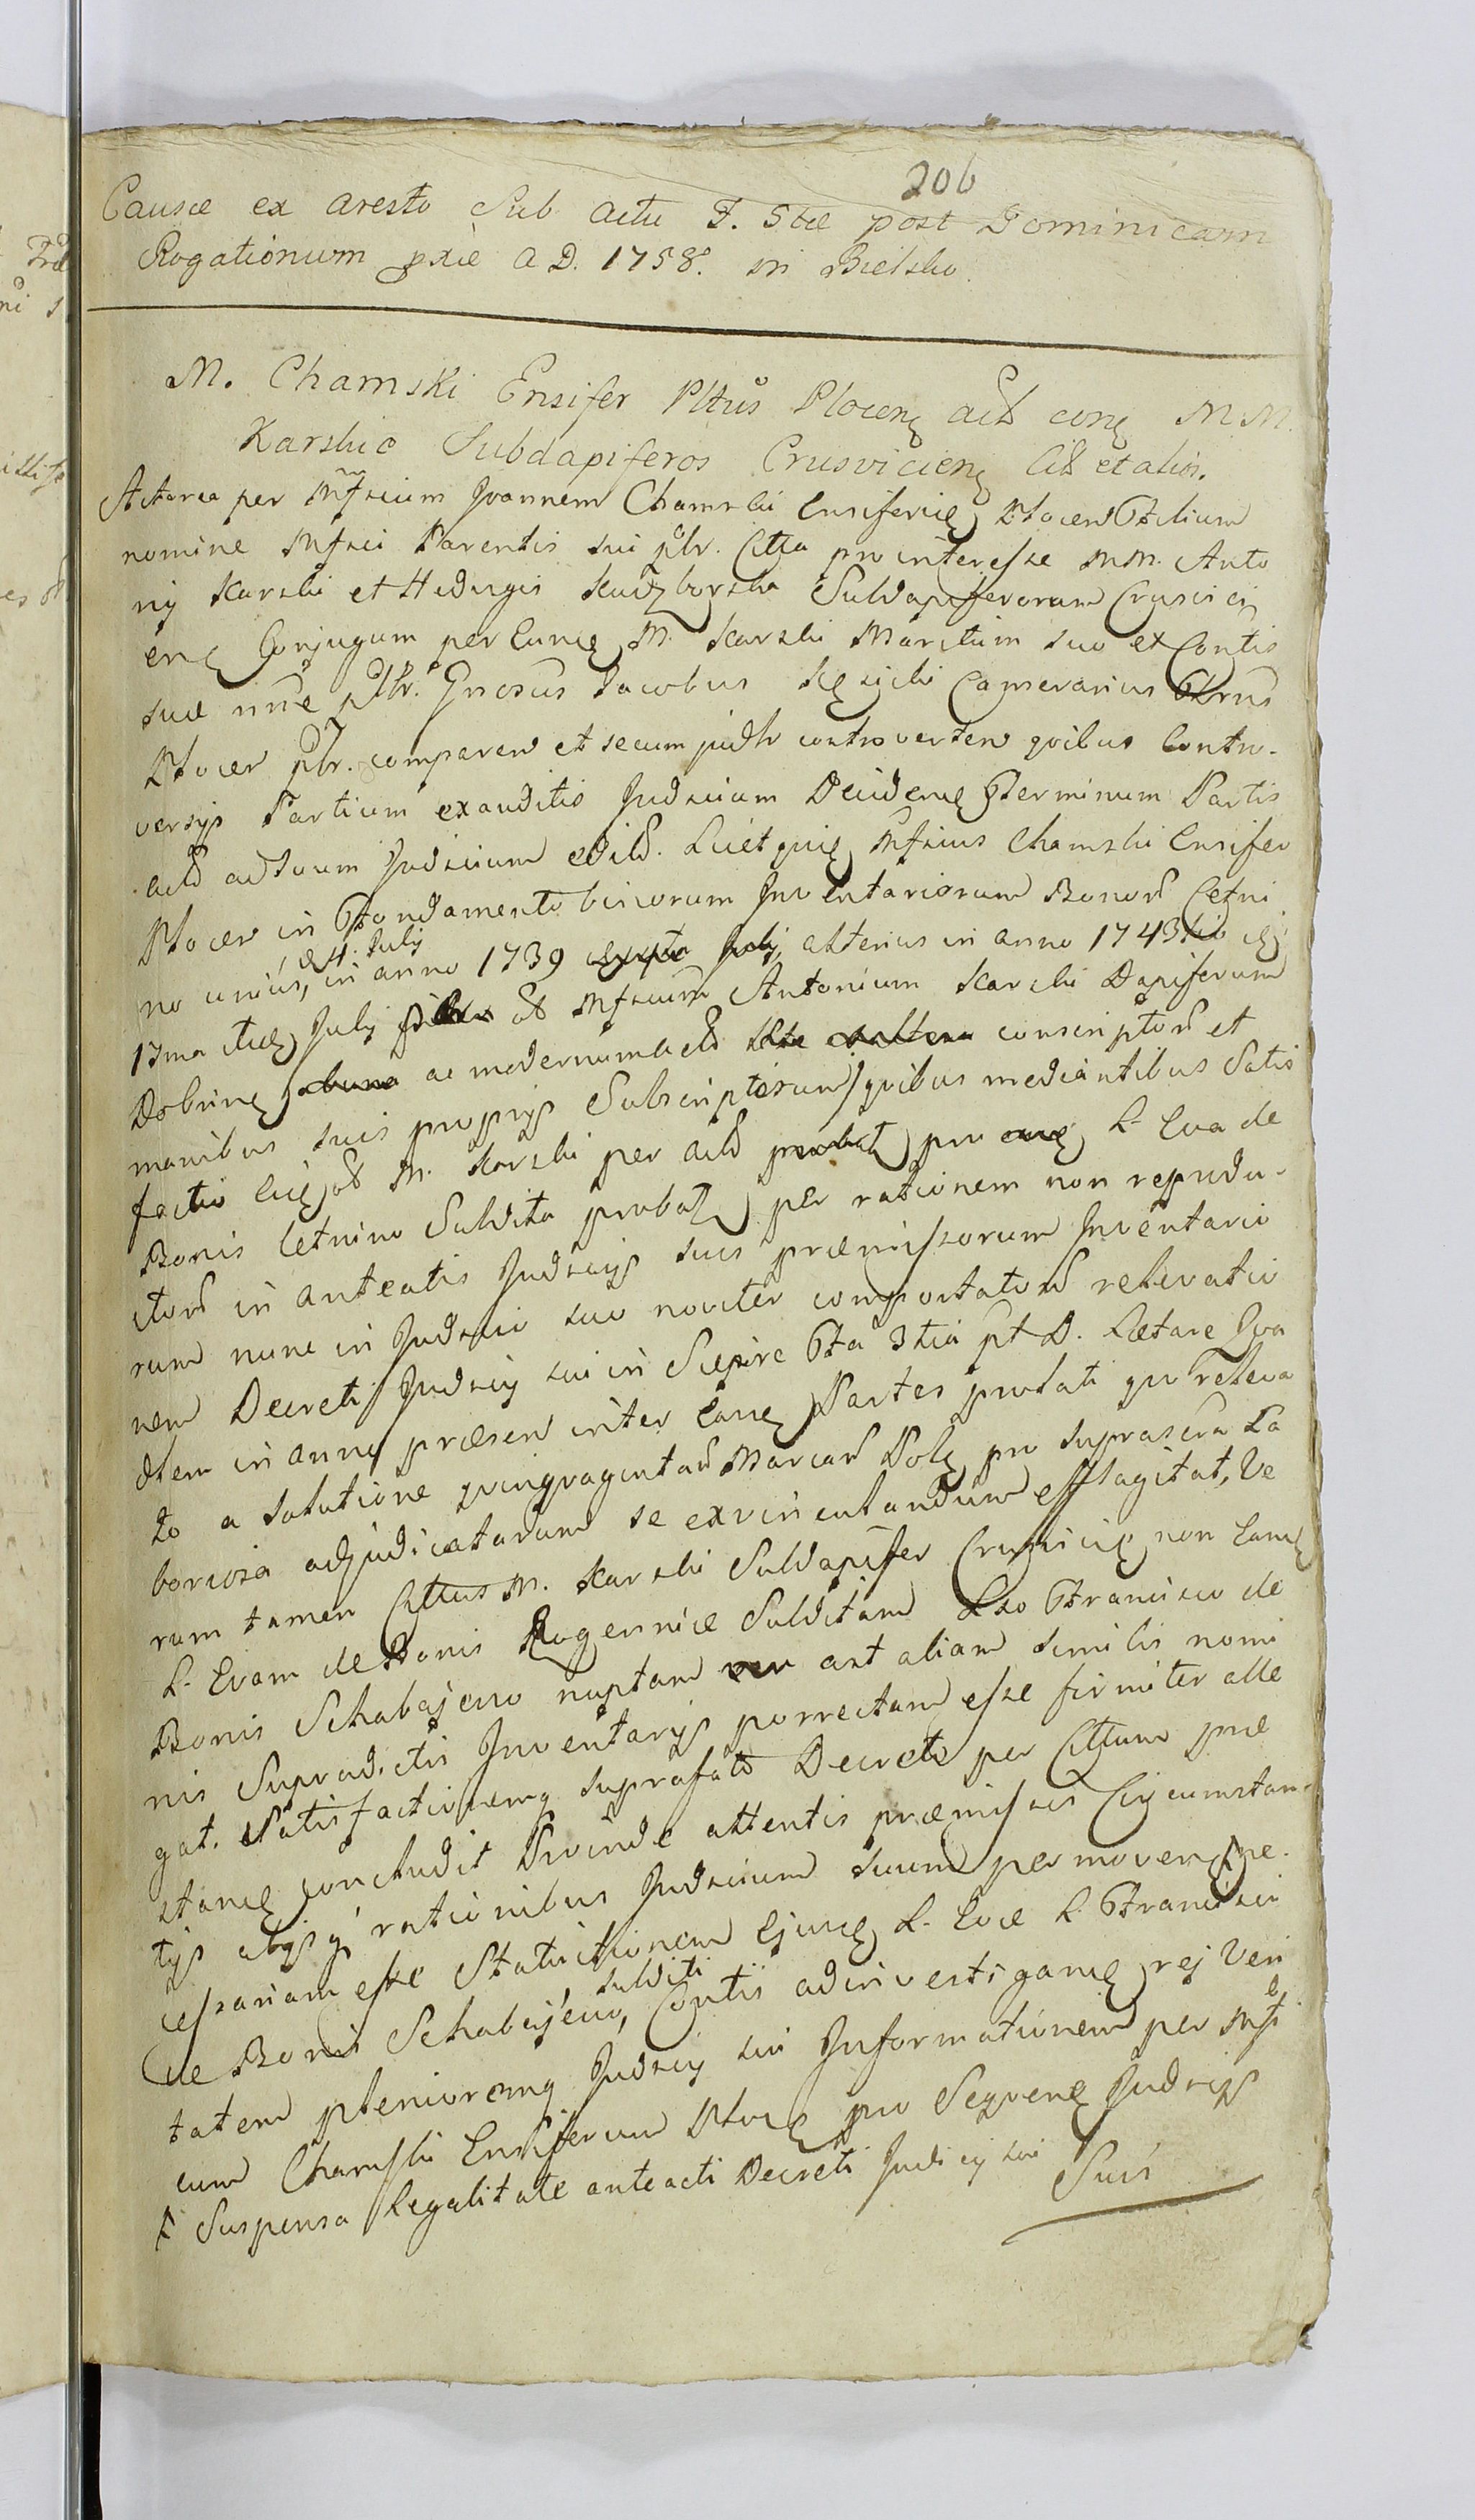 206
Causæ ex aresto Sub actu F. 5tæ post Dominicam
Rogationum pxiè A D. 1758. in Bielsko.
M. Chamski Ensifer Pltûs Plocen act con M M.
Karskie Subdapiferos Crusvicien Cit et alios.
Actorea per Mfcum Joannem Chamski Ensiferię Plocen Filium
nomine Mfci Parentis sui plr. Citta pro interesse MM. Anto
nij Karski et Hedvigis Kuczborska Subdapiferorum Crusvici
en Conjugum per Eunc M. Karski Maritum suo et Contis
suæ nne plr. Gnosus Jacobus Camerarius Ttrus
Plocen plr. comparen et secum judlr controverten qvibus Contro-
versijs Partium exauditis Judicium Deciden Terminum Partis
act ad suum Judicium edid. Licet qui Mfcus Chamski Ensifer
Plocen in Fondamento binorum Inventariorum Bonor Cetni
no unius, in anno 1739 alterius in anno 1743tio
d 4. July
17ma July ab Mfcum Antonium Karski Dapiferum
Dobrin ac modernum act conscriptor et
manibus suis proprijs Subscriptorum qvibus mediantibus Satis
factio ab M. Karski per act pro L. Eva de
Bonis Cetnino Subdita probat per rationem non reprodu-
ctor in anteactis Judicijs suis præmissorum Inventario
rum nunc in Judicio suo noviter comportator relevatio
nem Decreti Judicij sui in Sierpc Fta 3tia pt D. Lætare Qva
dtem in anno præsen inter Easd Partes prolati qvo releva
to a solutione qvingvagintar Marcar Pol pro suprascra La
boriosa adjudicatarum se exvinculandum efflagitat, Ve
rum tamen Cittus M. Karski Subdapifer Crusvic non Eand
L. Evam de Bonis Rogennice Subditam Lso Francisco de
Bonis Schabajewo nuptam ast aliam similis nomi
nis Supradictis Inventarijs porrectam esse firmiter alle
gat. Satisfactionemq suprafato Decreto per Cittum præ
stan concludit Proinde attentis præmissis Circumstan-
tijs alijsq rationibus Judicium suum permoven ne-
cessariam esse Statuitionem Ejusd L. Evæ L. Francisci
de Bonis Schabajewo, Contis ad investigan rej Veri
subditi
tatem plenioremq Judicij sui Informationem per Mfi
cum Chamski Ensiferum Ploc pro Seqven Judicijs
Suspensa Legalitate anteacti Decreti Judicij sui Suis